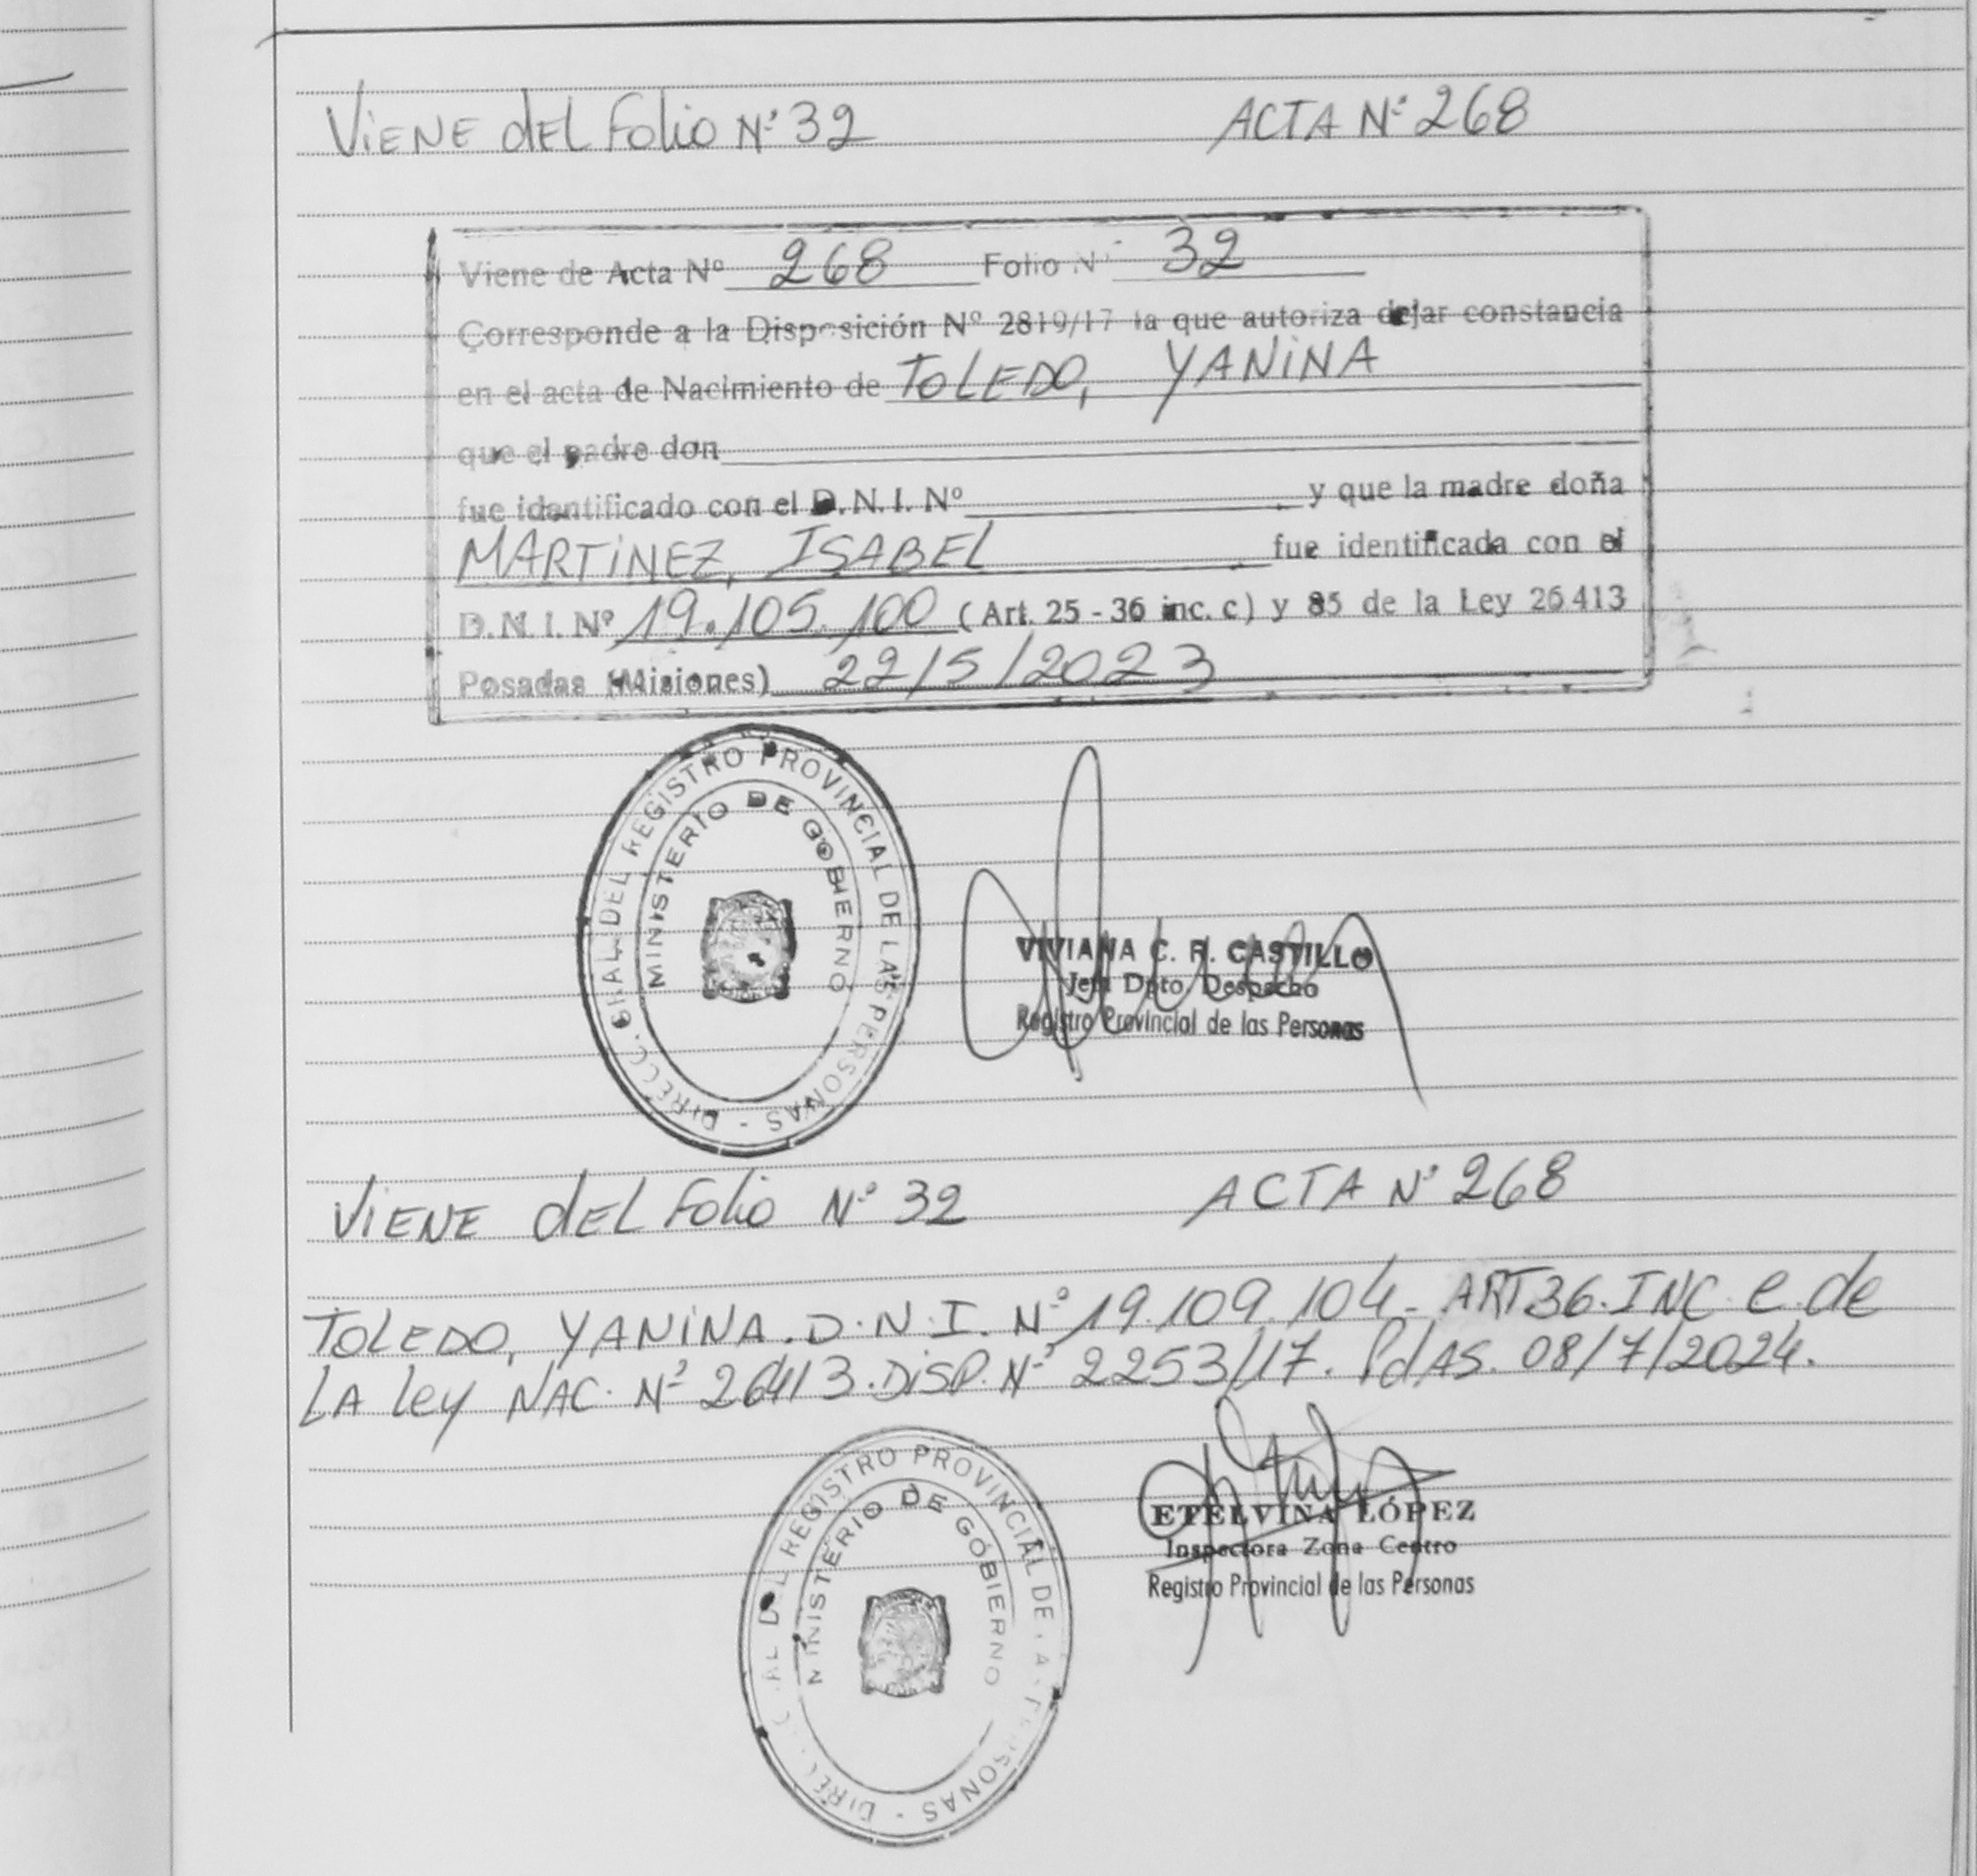 ViENE dEL Folio Nº 32 ACTA Nº 268
Viene de Acta Nº 268 Folio Nº 32
Corresponde a la Disposición Nº 2819/17 la que autoriza dejar constancia
en el acta de Nacimiento de TOLEDO, YANiNA
que el padre don
fue identificado con el D.N.I. Nº y que la madre doña
MARTiNEZ, ISABEL fue identificada con el
D.N.I. Nº 19.105.100 (Art. 25 - 36 inc. c) y 85 de la Ley 26413
Posadas (Misiones) 22/5/2023
DIRECC. GRAL. DEL REGISTRO PROVINCIAL DE LAS PERSONAS -
MINISTERIO DE GOBIERNO
VIVIANA C. R. CASTILLO
Jefa Dpto. Despacho
Registro Provincial de las Personas
ViENE dEL Folio Nº 32 ACTA Nº 268
TOLEDO, YANiNA. D.N.I. Nº 19.109.104- ART 36. INC. e. de
LA Ley NAC. Nº 26413. DiSP. Nº 2253/17. PdAS. 08/7/2024.
REGISTRO PROVINCIAL DE
MINISTERIO DE GOBIERNO
ETELVINA LÓPEZ
Inspectora Zona Centro
Registro Provincial de las Personas